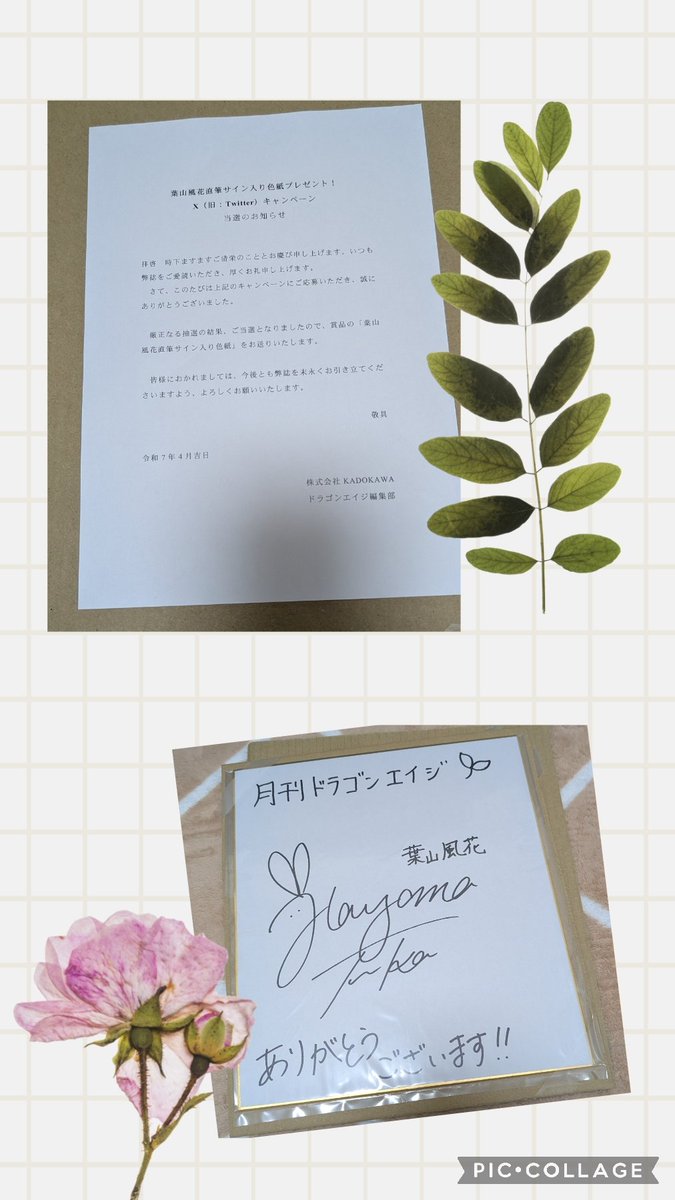 葉山風花直筆サイン入り色紙プレゼント！
X（旧：Twitter）キャンペーン
当選のお知らせ
拝啓　時下ますますご清栄のこととお慶び申し上げます。いつも
弊誌をご愛読いただき、厚くお礼申し上げます。
さて、このたびは上記のキャンペーンにご応募いただき、誠に
ありがとうございました。
厳正なる抽選の結果、ご当選となりましたので、賞品の「葉山
風花直筆サイン入り色紙」をお送りいたします。
皆様におかれましては、今後とも弊誌を末永くお引き立てくだ
さいますよう、よろしくお願いいたします。
敬具
令和７年４月吉日
株式会社 KADOKAWA
ドラゴンエイジ編集部
月刊ドラゴンエイジ
葉山風花
Hayama
Fuka
ありがとう
ございます!!
PIC•COLLAGE